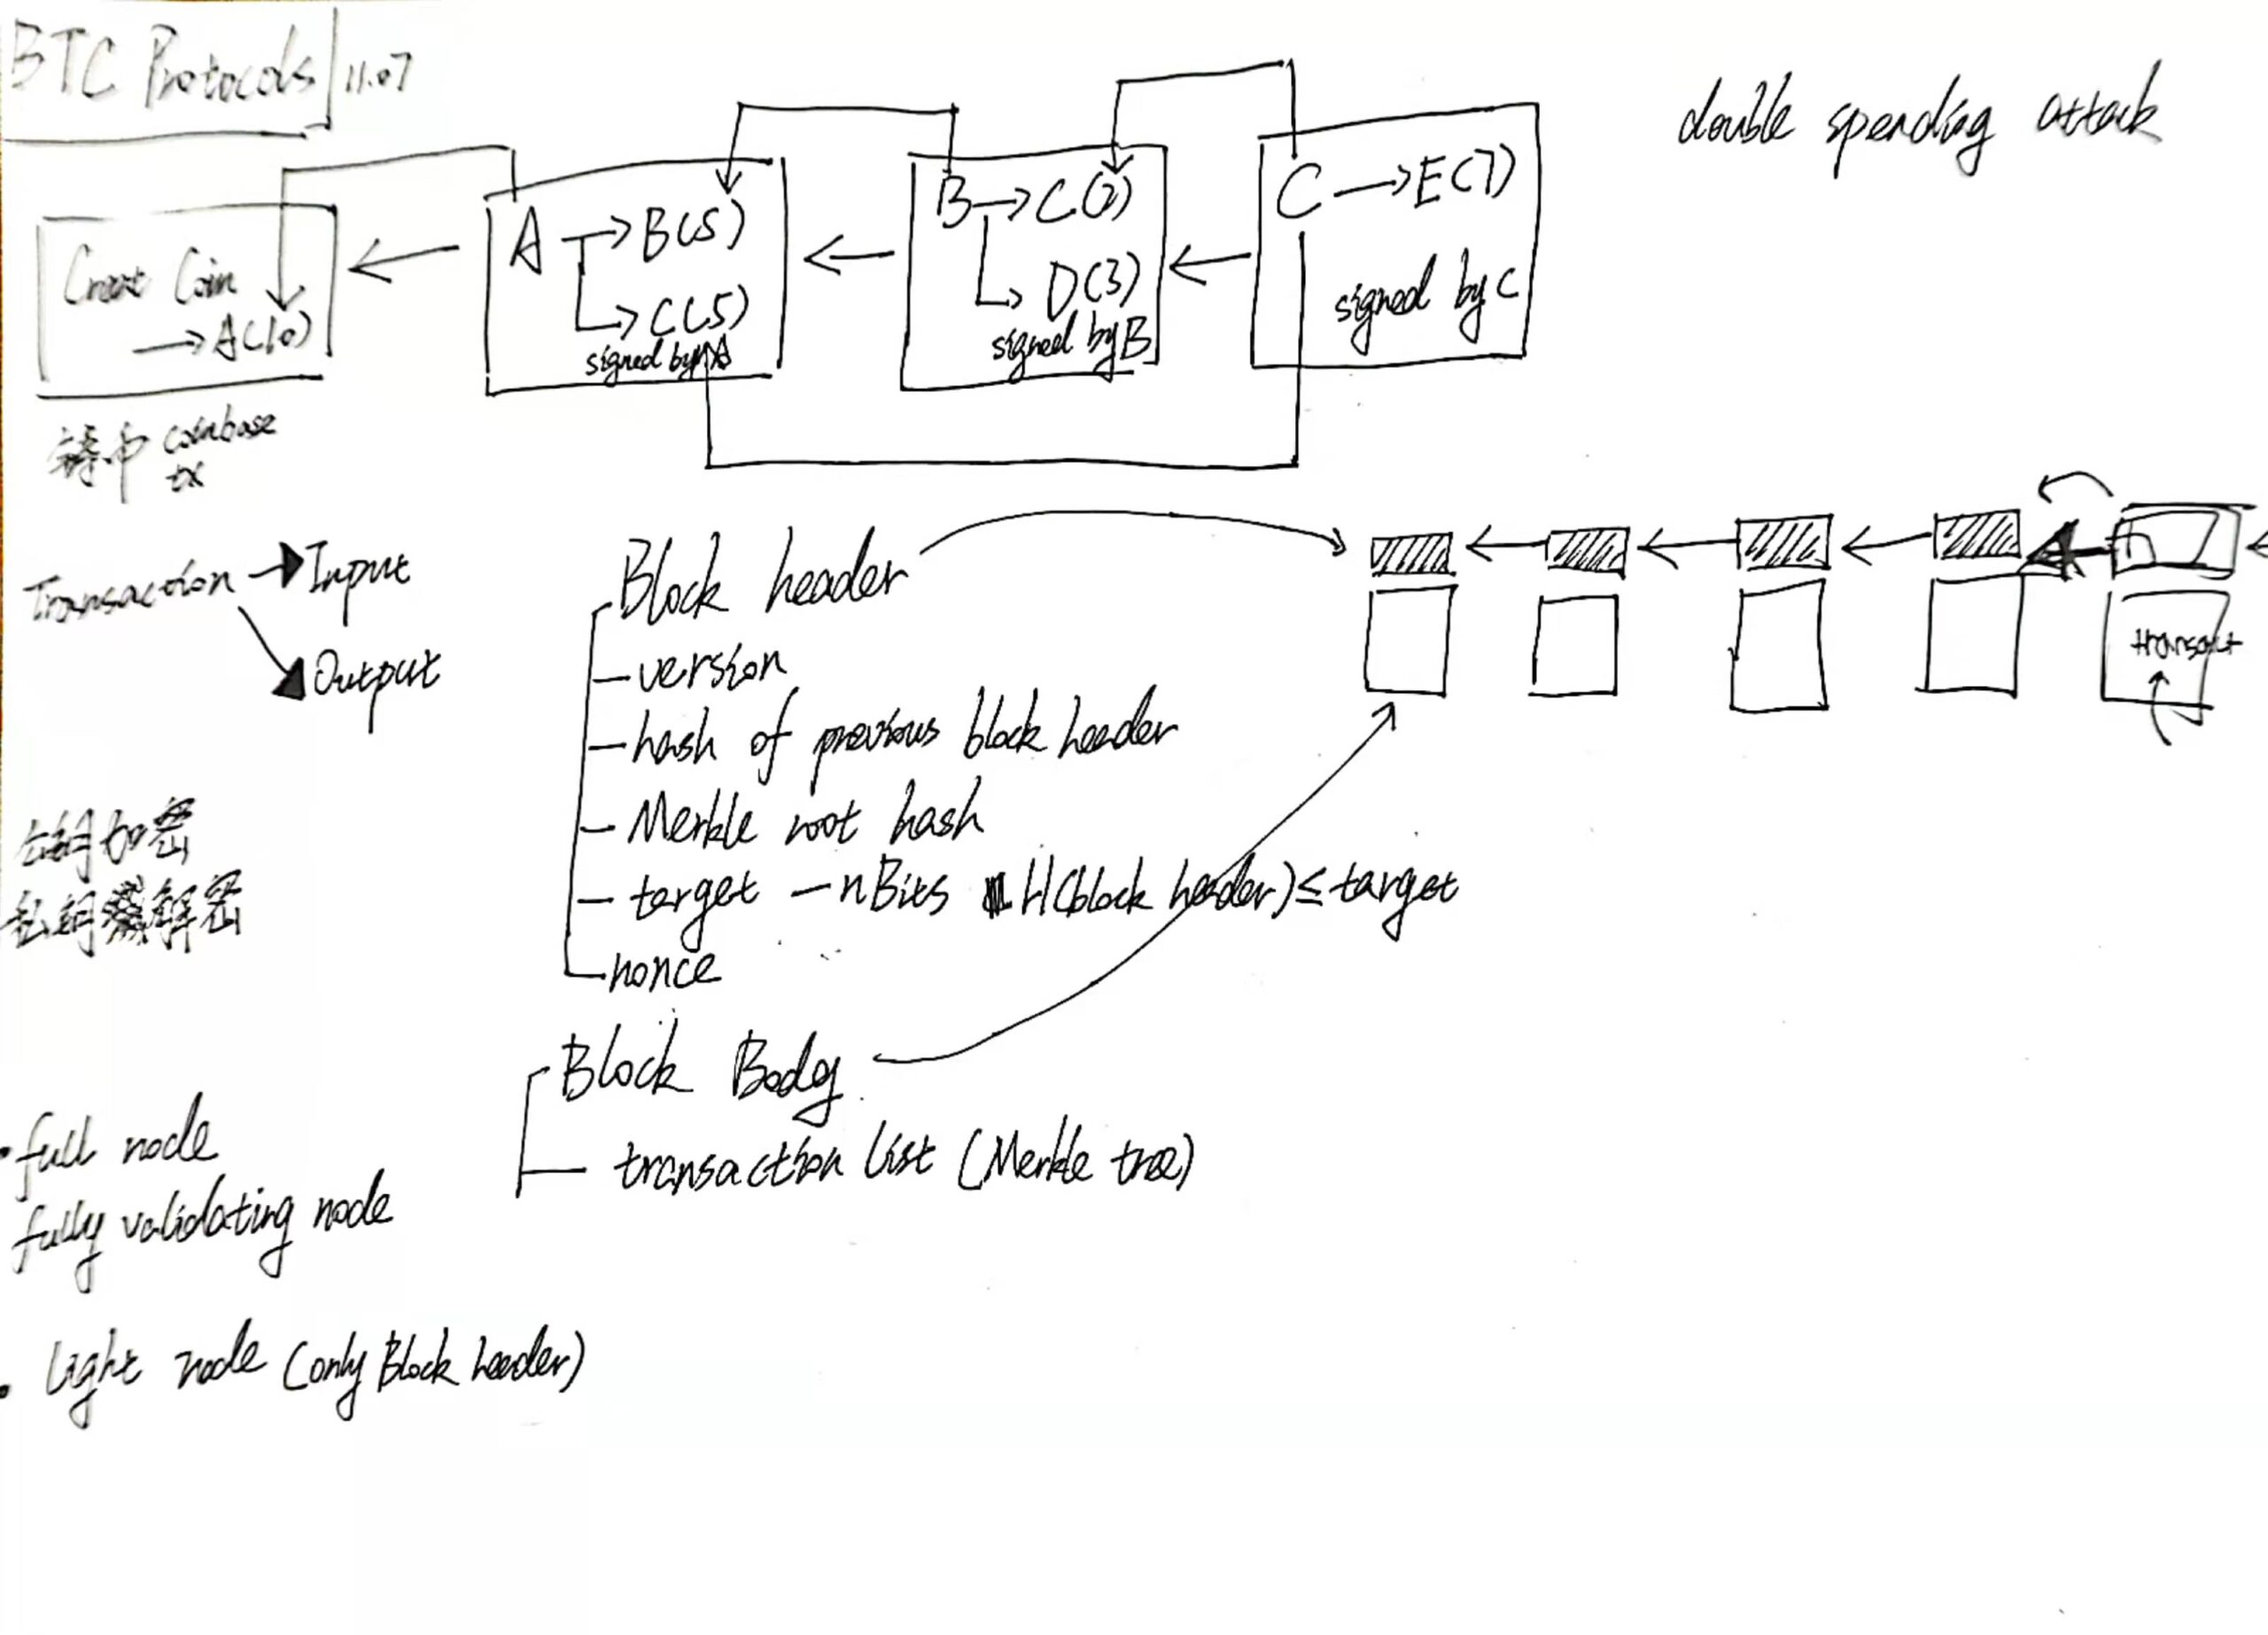 BTC Protocols 11.07
double spending attack
Creat Coin
→ A(10)
A → B(5)
→ C(5)
signed by A
B → C(2)
→ D(3)
signed by B
C → E(7)
signed by C
铸币 coinbase
tx
Transaction → Input
Output
Block header
- version
- hash of previous block header
- Merkle root hash
- target - nBits H(block header) ≤ target
- nonce
transact
公钥加密
私钥解密
Block Body
- transaction list (Merkle tree)
· full node
fully validating node
· light node (only Block header)